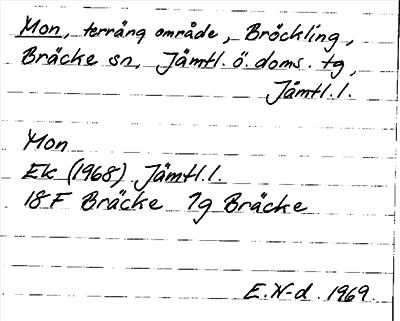 Mon, terräng område, Bröckling,
Bräcke sn, Jämtl. ö. doms. tg,
Jämtl. l.
Mon
Ek (1968) Jämtl. l.
18 F Bräcke 7g Bräcke
E. N-d. 1969.